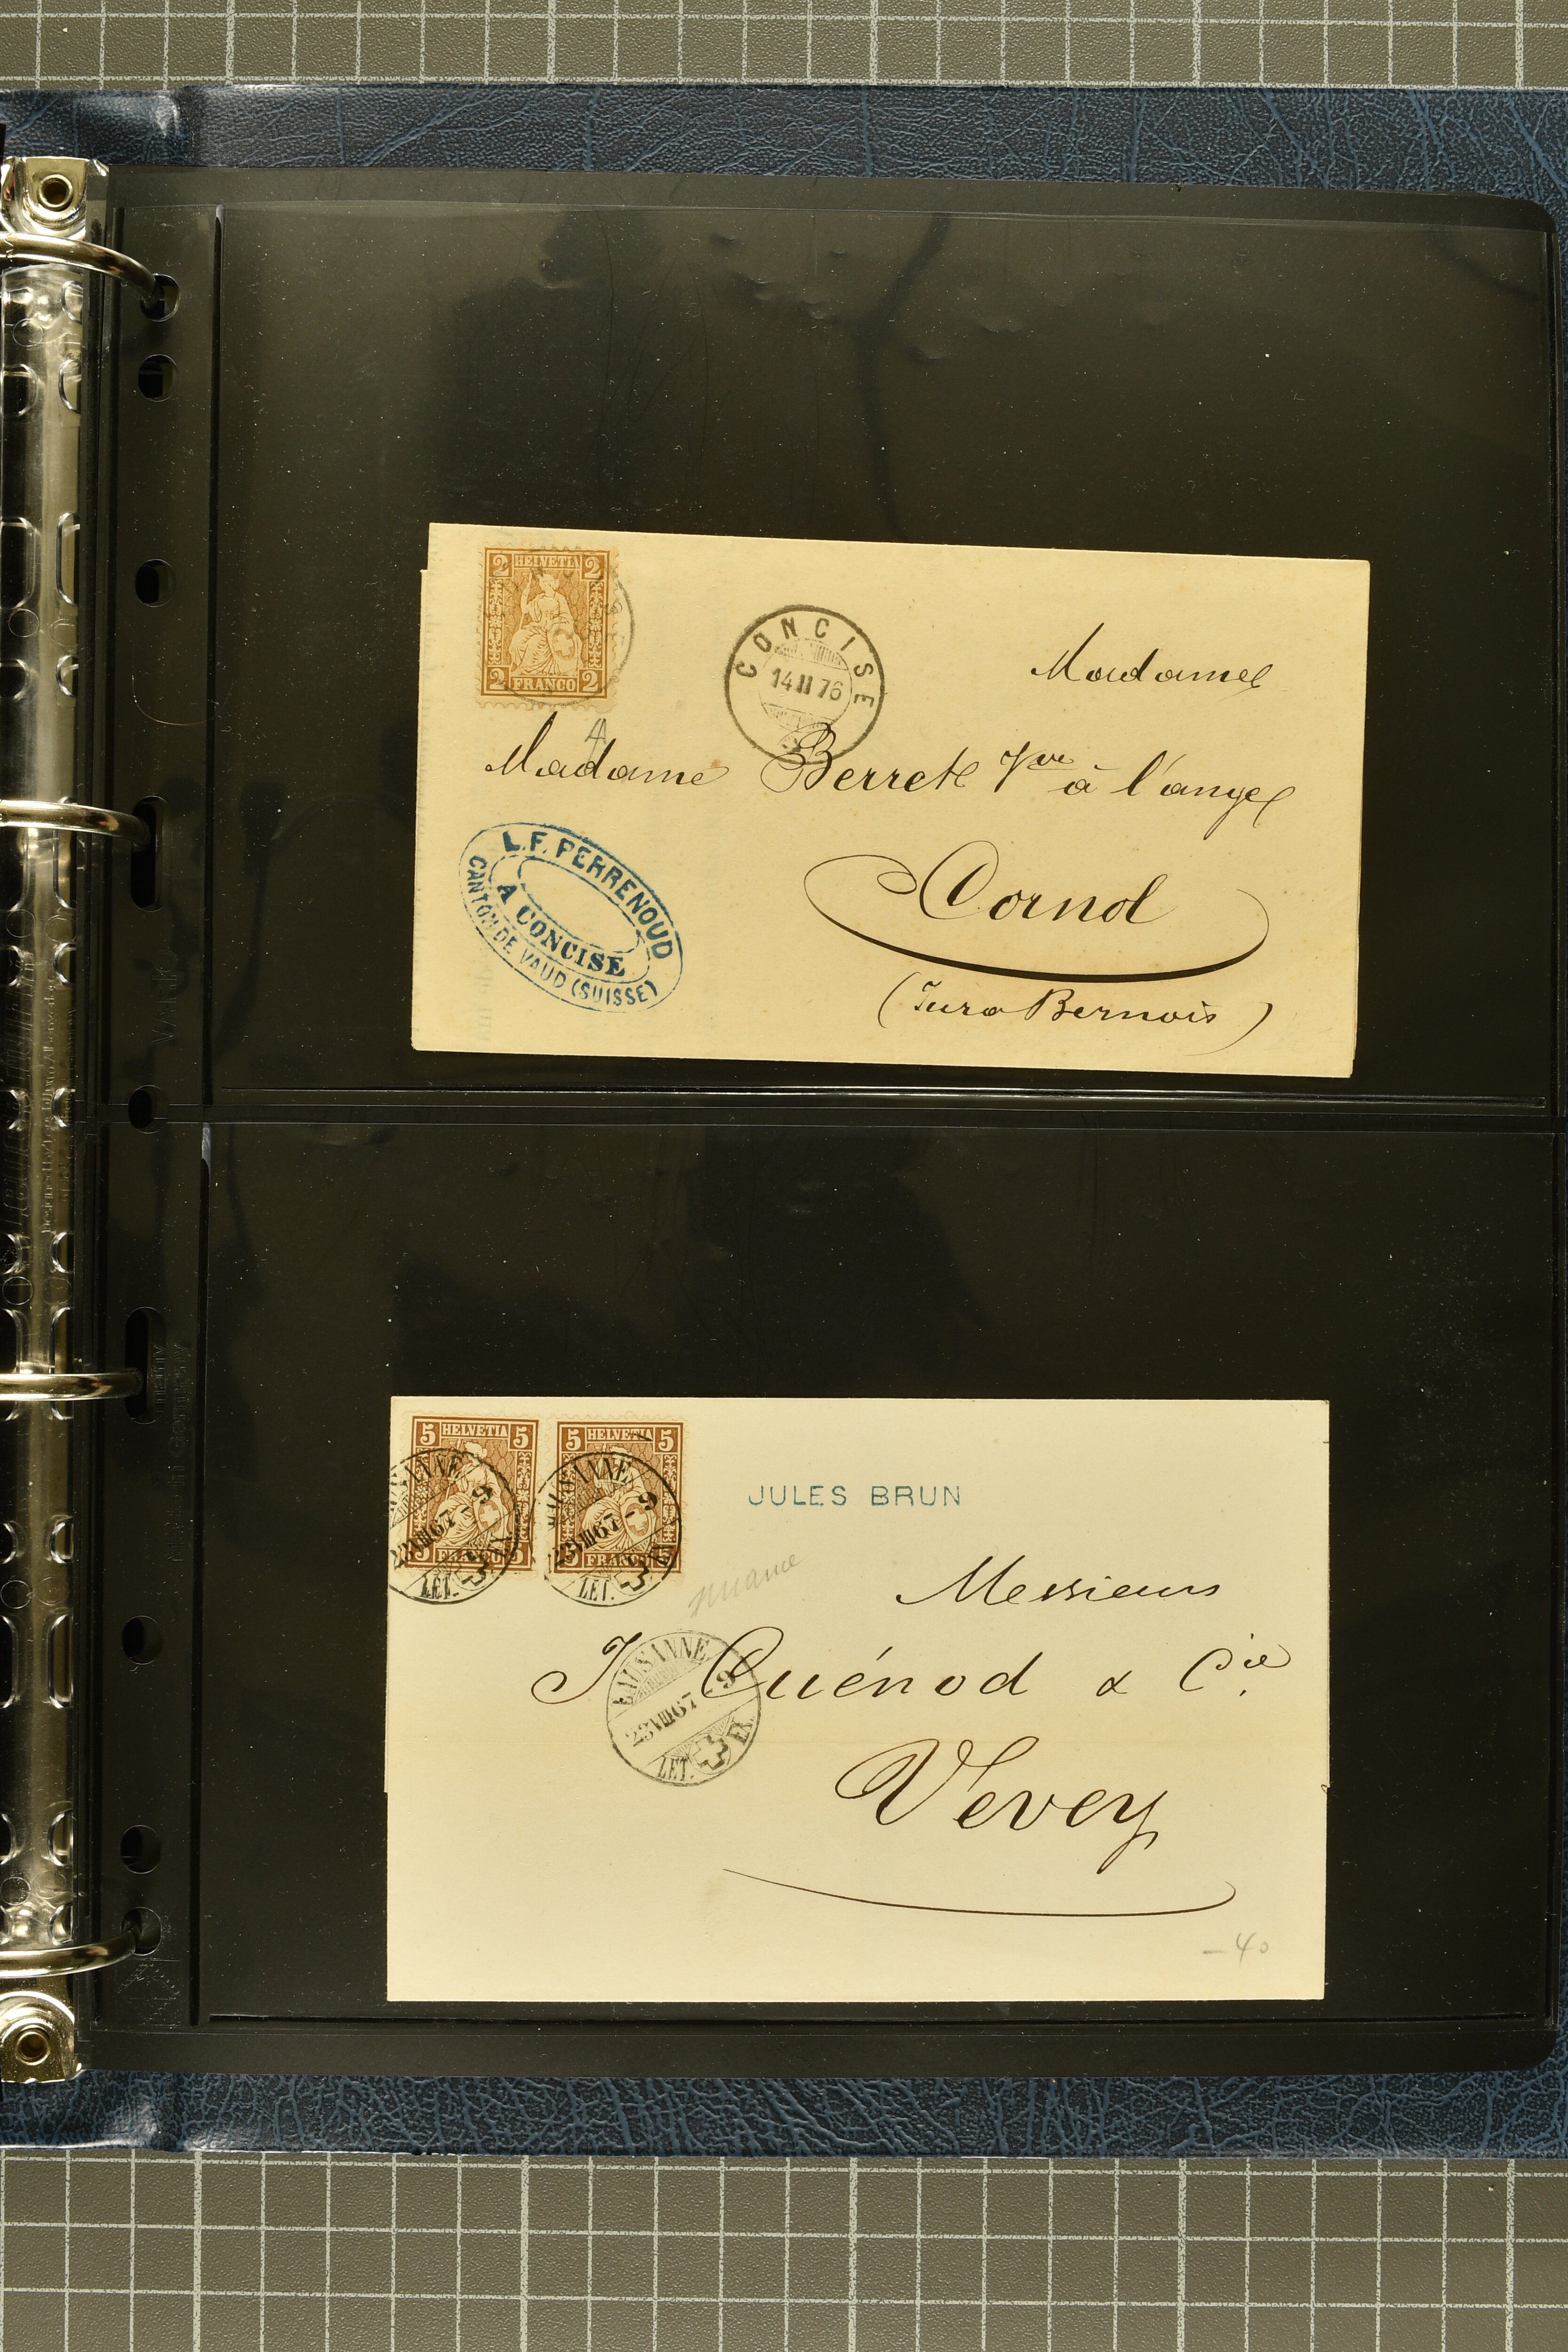 2 HELVETIA 2
2 FRANCO 2
CONCISE
14 II 76
Madame
Madame Berret Vve à l'ange
Cornol
(Jura Bernois)
L.F. PERRENOUD
A CONCISE
CANTON DE VAUD (SUISSE)
5 HELVETIA 5
5 HELVETIA 5
FRANCO
FRANCO
LAUSANNE
23 VIII 67 - 9
LET. EX.
JULES BRUN
Messieurs
J Cuénod & Cie
LAUSANNE
23 VIII 67 - 9
LET. EX.
Vevey
- 40